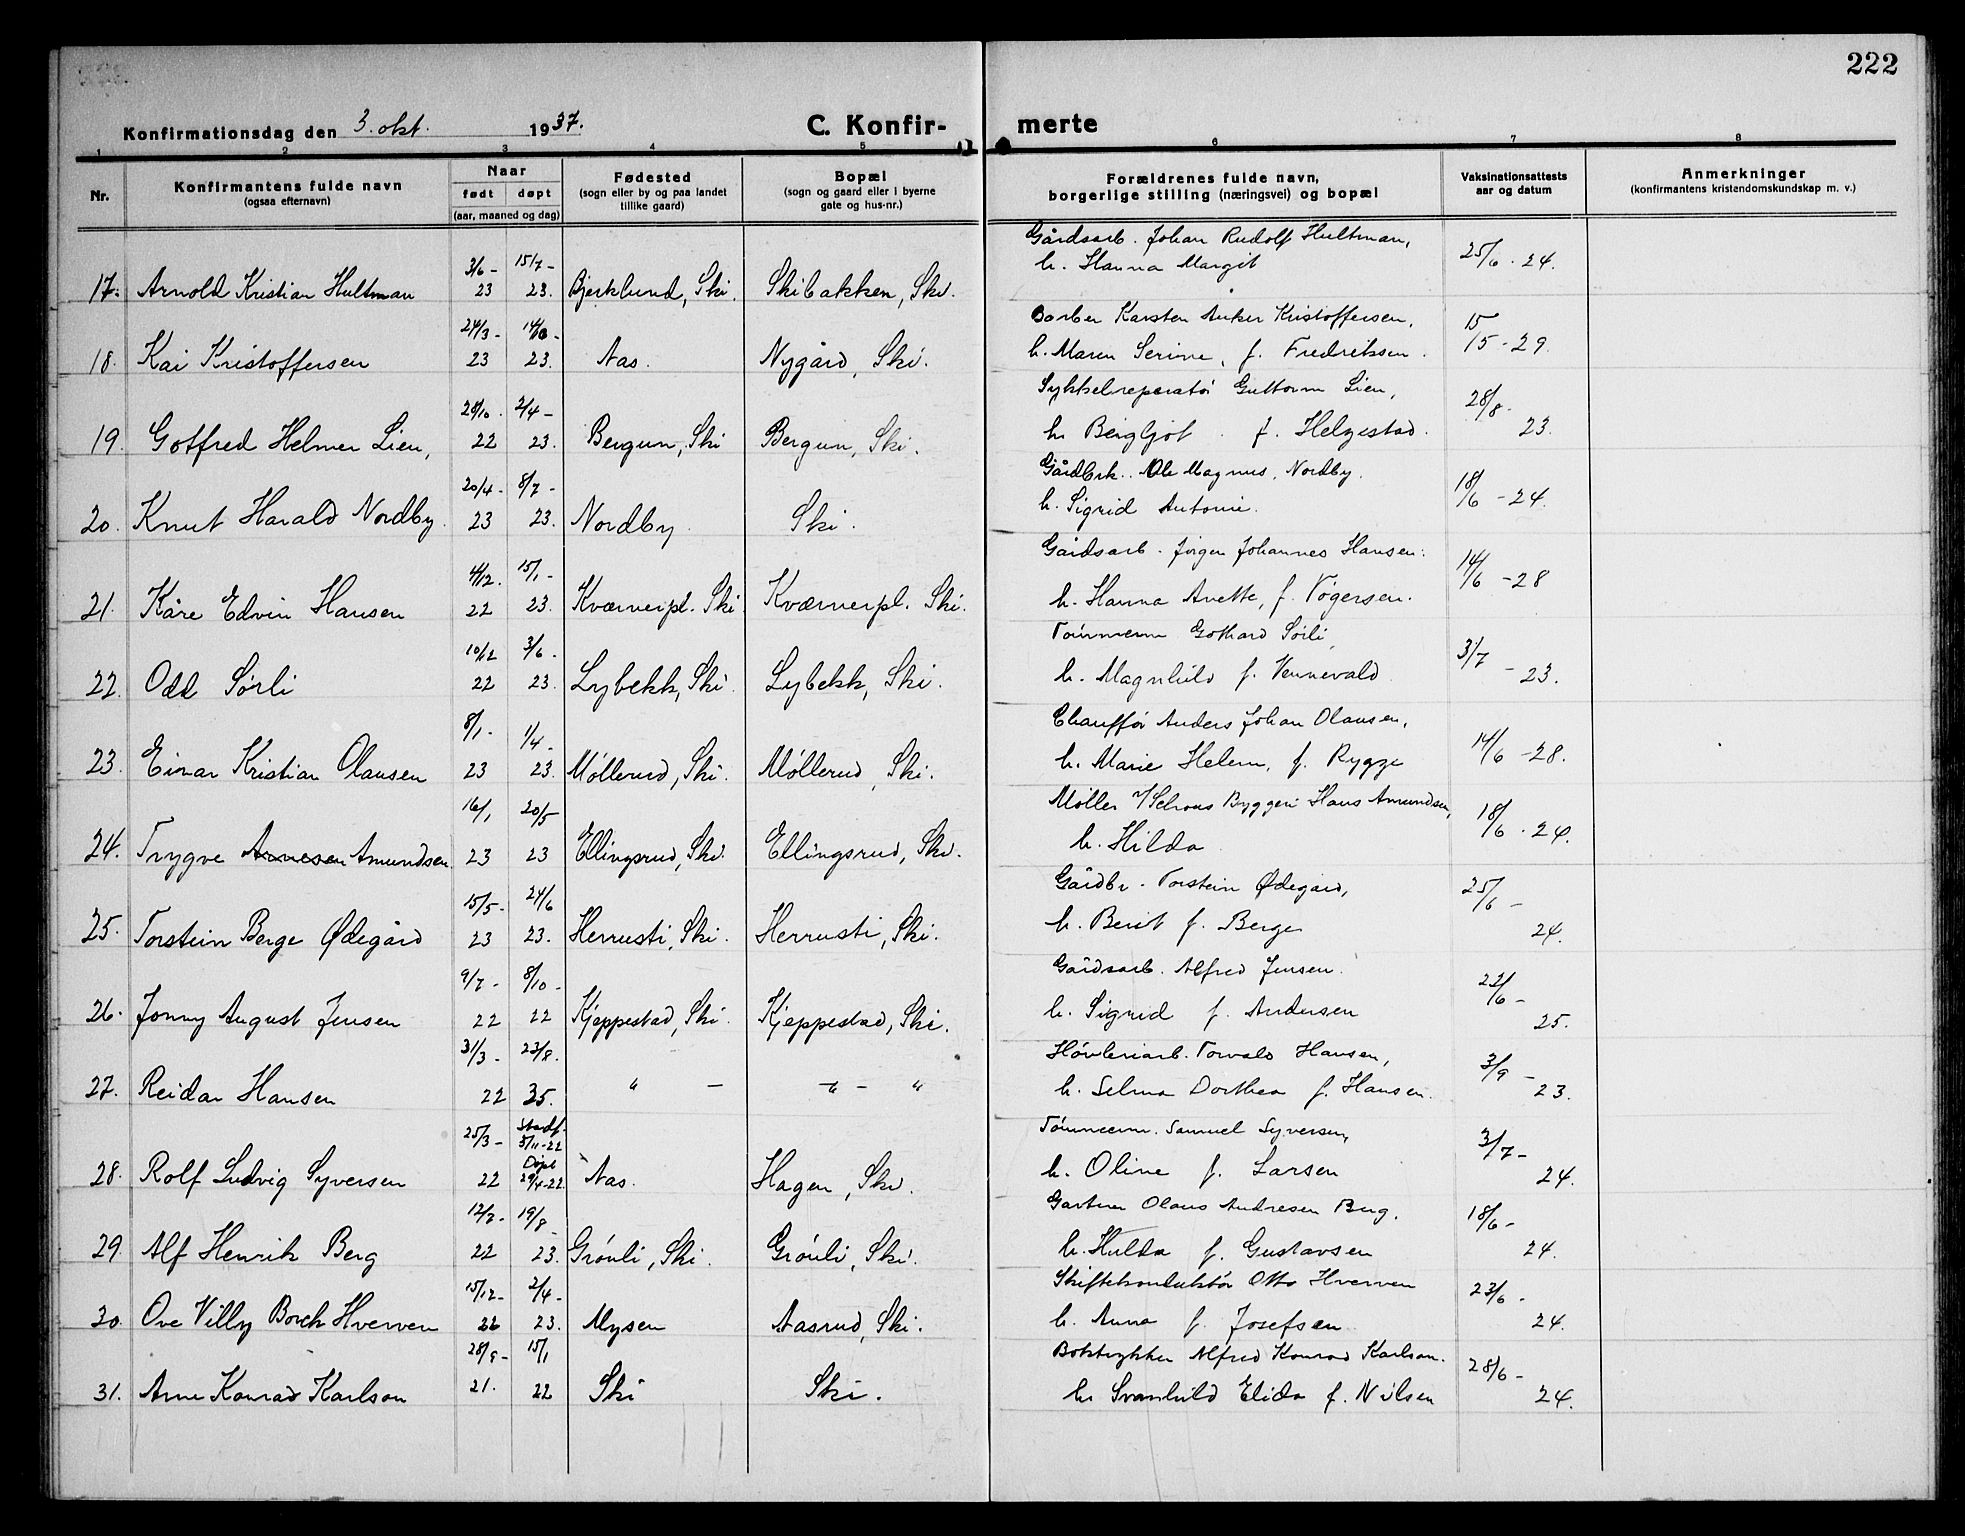 222
Konfirmationsdag den 3. okt. 1937.
C. Konfirmerte
1 2 3 4 5 6 7 8
Nr.
Konfirmantens fulde navn
(ogsaa efternavn)
Naar
født døpt
(aar, maaned og dag)
Fødested
(sogn eller by og paa landet
tillike gaard)
Bopæl
(sogn og gaard eller i byerne
gate og hus-nr.)
Forældrenes fulde navn,
borgerlige stilling (næringsvei) og bopæl
Vaksinationsattests
aar og datum
Anmerkninger
(konfirmantens kristendomskundskap m. v.)
Gårdsarb. Johan Rudolf Hultman,
3/6 - 15/7 - h. Hanna Margit 25/6 - 24.
17. Arnold Kristian Hultman 23 23. Bjerklund, Ski. Skibakken, Ski.
Barber Karsten Anker Kristoffersen, 15
18. Kai Kristoffersen 23 23. Aas. Nygård, Ski. h. Maren Serine, f. Fredriksen. 15 - 29.
28/10. 2/4 - Sykkelreparatør Guttorm Lien, 28/8 -
19. Gotfred Helmer Lien, 22 23. Bergun, Ski Bergun, Ski. h. Bergljot f. Helgestad. 23.
20/4 - 8/7 - Ole Magnus Nordby. 18/6 - 24.
20. Knut Harald Nordby. 23 23. Nordby. Ski. h. Sigrid Antonie.
4/12. 15/1 - Gårdsarb. Jørgen Johannes Hansen. 14/6 - 28
21. Kåre Edvin Hansen 22 23. Kværnerpl. Ski Kværnerpl. Ski. h. Hanna Anette, f.
10/12 3/6. Tømmerm Gothard Sørli, 3/7
22. Odd Sørli 22 23. Lybekk, Ski. Lybekk, Ski. h. Magnhild f. Vennevald. - 23.
8/1 - 1/4 - Chauffør Anders Johan Olausen,
23. Einar Kristian Olausen 23 23. Møllerud, Ski. Møllerud, Ski. h. Marie Helene, f. Rygge 14/6 - 28.
16/1 20/5 Møller v/ Schous Byggeri Hans Amundsen, 18/6 - 24.
24. Trygve Arnesen Amundsen 23 23 Ellingsrud, Ski. Ellingsrud, Ski. h. Hilda
15/5 - 24/6 Gårdbr. Torstein Ødegård, 25/6 -
25. Torstein Berge Ødegård 23 23. Herrusti, Ski. Herrusti, Ski. h. Berit f. Berge 24.
9/7 - 8/10 - Gårdsarb. Alfred Jensen. 22/6 -
26. Jonny August Jensen 22 22 Kjeppestad, Ski. Kjeppestad, Ski. h. Sigrid f. Andersen 25.
31/3 - 23/8. Høvleriarb. Torvald Hansen, 3/9 -
27. Reidar Hansen 22 35. " - - " - " h. Selma Dorthea f. Hansen. 23.
25/3 - Stadf. 5/11-22 Tømmerm. Samuel Syversen, 3/7 -
Døpt
28. Rolf Ludvig Syversen 22 29/4-22 Aas. Hagen, Ski. h. Oline f. Larsen 24.
19/8 - Gartner Olaus Andresen Berg. 18/6 -
29. Alf Henrik Berg 22 23. Grønli, Ski. Grønli, Ski. h. Hulda f. Gustavsen 24.
15/12 - 2/4 - Skiftekonduktør Otto Hverven 23/6 -
30. Ove Villy Borch Hverven 22 23. Mysen Aasrud, Ski. h. Anna f. Josefsen 24.
28/9 - 15/1 Boktrykker Alfred Konrad Karlson. 28/6 -
31. Arne Konrad Karlson 21. 22 Ski Ski. h. Svanhild Elida f. Nilsen 24.